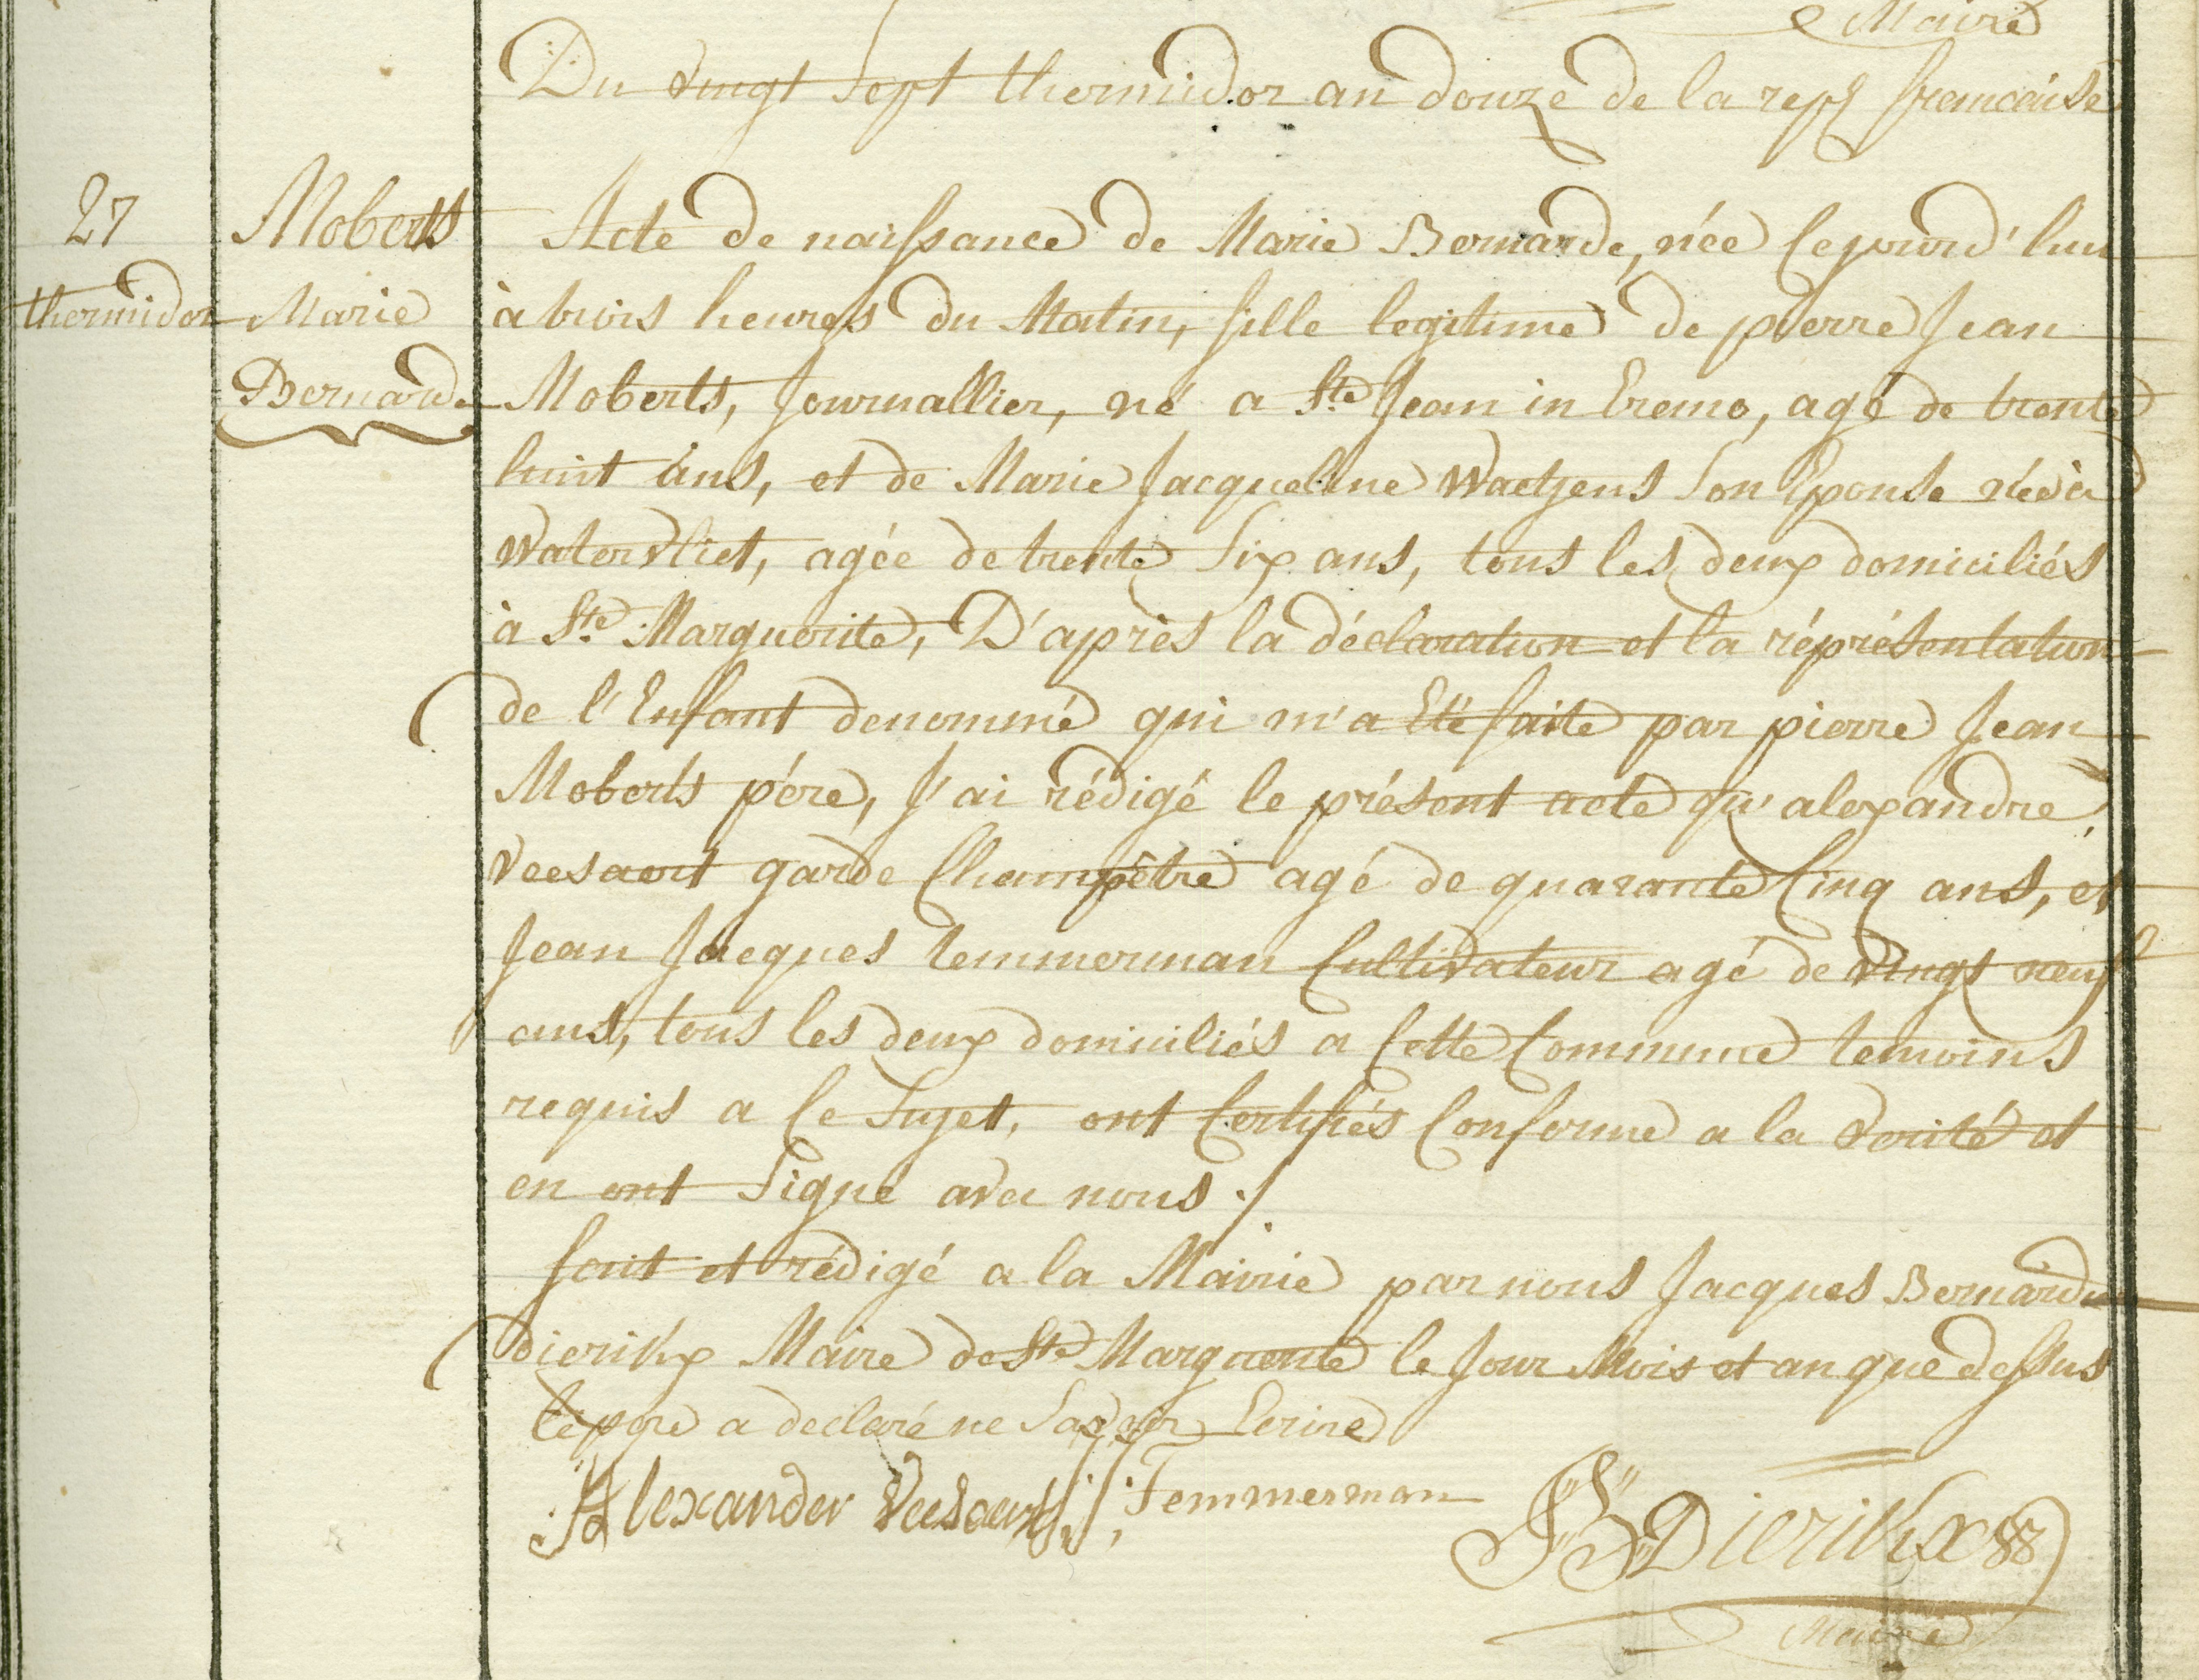 Maire
Du vingt Sept thermidor an douze de la rep francaise
27
thermidor
Moberts
Marie
Bernarde
Acte de naissance de Marie Bernarde, née Cejourd'hui
à trois heures du Matin, fille legitime de pierre Jean
Moberts, Journallier, né a Ste Jean in Eremo, agé de trente
huit ans, et de Marie Jacqueline Waetzens Son Epouse née à
Watervliet, agée de trente Six ans, tous les deux domiciliés
à Ste Marguerite, D'après la déclaration et la réprésentation
de l'Enfant denommé qui m'a Eté faite par pierre Jean
Moberts pére, J'ai rédigé le présent acte qu'alexandre
Veesaert garde Champêtre agé de quarante Cinq ans, et
Jean Jacques temmerman Cultivateur agé de vingt neuf
ans, tous les deux domiciliés a Cette Commune temoins
requis a Ce Sujet, ont Certifiés Conforme a la verité et
en ont Signé avec nous ./
fait et rédigé a la Mairie par nous Jacques Bernard
dierikx Maire de Ste Marguerite le Jour Mois et an que dessus
le pere a declaré ne Savoir Ecrire
Alexander Veesaert J: J: Temmerman
JB Dierikx
Maire